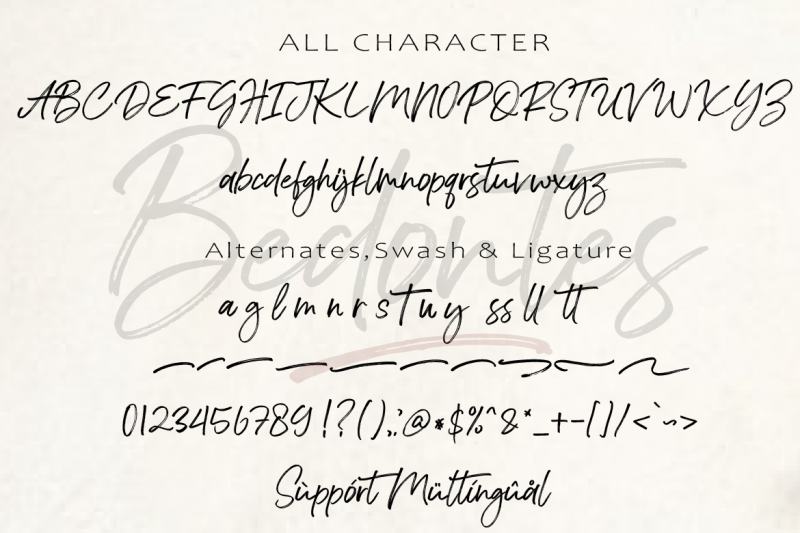 ALL CHARACTER
ABCDEFGHIJKLMNOPQRSTUVWXYZ
abcdefghijklmnopqrstuvwxyz
Bedontes
Alternates,Swash & Ligature
a g l m n r s t u y ss ll tt
0123456789!?().,:;@*$%^&"_+-[]/<`~>
Sùppórt Mültíngûål